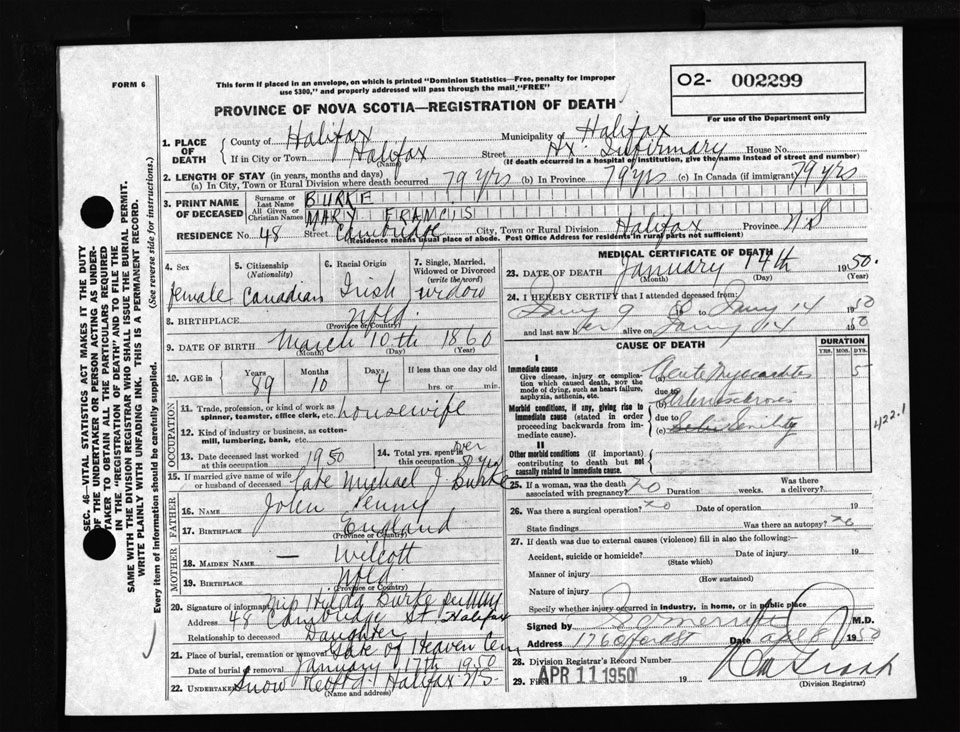 FORM 6
This form if placed in an envelope, on which is printed "Dominion Statistics—Free, penalty for improper
use $300," and properly addressed will pass through the mail "FREE"
O2- 002299
For use of the Department only
PROVINCE OF NOVA SCOTIA—REGISTRATION OF DEATH
SEC. 46—VITAL STATISTICS ACT MAKES IT THE DUTY
OF THE UNDERTAKER OR PERSON ACTING AS UNDER-
TAKER TO OBTAIN ALL THE PARTICULARS REQUIRED
IN THE "REGISTRATION OF DEATH" AND TO FILE THE
SAME WITH THE DIVISION REGISTRAR WHO SHALL ISSUE THE BURIAL PERMIT.
WRITE PLAINLY WITH UNFADING INK. THIS IS A PERMANENT RECORD.
Every item of information should be carefully supplied. (See reverse side for instructions.)
1. PLACE OF DEATH County of Halifax Municipality of Halifax
If in City or Town Halifax (Name) Street Hx. Infirmary House No.
(If death occurred in a hospital or institution, give the name instead of street and number)
2. LENGTH OF STAY (in years, months and days)
(a) In City, Town or Rural Division where death occurred 79 yrs (b) In Province 79 yrs (c) In Canada (if immigrant) 79 yrs
3. PRINT NAME OF DECEASED Surname or Last Name BURKE
All Given or Christian Names MARY FRANCIS
RESIDENCE No. 48 Street Cambridge City, Town or Rural Division Halifax Province N.S
(Residence means usual place of abode. Post Office Address for residents in rural parts not sufficient)
4. Sex 5. Citizenship (Nationality) 6. Racial Origin 7. Single, Married, Widowed or Divorced (write the word)
female Canadian Irish widow
8. BIRTHPLACE Nfld.
(Province or Country)
9. DATE OF BIRTH March 10th 1860
(Month) (Day) (Year)
10. AGE in Years Months Days If less than one day
89 10 4 hrs. or min.
OCCUPATION
11. Trade, profession, or kind of work as spinner, teamster, office clerk, etc. housewife
12. Kind of industry or business, as cotton-mill, lumbering, bank, etc.
13. Date deceased last worked at this occupation 1950 14. Total yrs. spent in this occupation over 50 yrs
15. If married give name of wife or husband of deceased Late Michael J Burke
FATHER
16. Name John Penny
17. Birthplace England
(Province or Country)
MOTHER
18. Maiden Name — Wilcott
19. Birthplace Nfld.
(Province or Country)
20. Signature of informant Miss Hilda Burke
Address 48 Cambridge St. Halifax
Relationship to deceased Daughter
21. Place of burial, cremation or removal Gate of Heaven Cem
Date of burial or removal January 17th 1950
22. Undertaker Snow Halifax N.S.
(Name and address)
MEDICAL CERTIFICATE OF DEATH
23. DATE OF DEATH January 14th 1950.
(Month) (Day) (Year)
24. I HEREBY CERTIFY that I attended deceased from:
9 to 14 1950
and last saw her alive on 14 1950
CAUSE OF DEATH DURATION
YRS. MOS. DYS.
I
Immediate cause
Give disease, injury or complication which caused death, NOT the mode of dying, such as heart failure, asphyxia, asthenia, etc.
(a) Acute Myocarditis 5
due to
Morbid conditions, if any, giving rise to immediate cause (stated in order proceeding backwards from immediate cause).
(b) Arteriosclerosis
due to
(c) Senility
422.1
II
Other morbid conditions (if important) contributing to death but not causally related to immediate cause.
25. If a woman, was the death associated with pregnancy? no Duration weeks. Was there a delivery?
26. Was there a surgical operation? no Date of operation 19
State findings Was there an autopsy? no
27. If death was due to external causes (violence) fill in also the following:
Accident, suicide or homicide? Date of injury 19
(State which)
Manner of injury
(How sustained)
Nature of injury
Specify whether injury occurred in industry, in home, or in public place
Signed by M.D.
Address 176 Oxford St Date Apl 8 1950
28. Division Registrar's Record Number
29. Filed APR 11 1950 19
(Division Registrar)